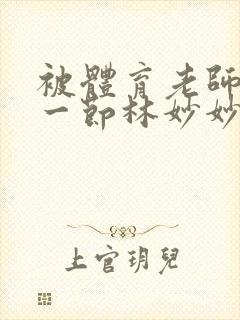 被體育老師
一節林妙妙
上官玥兒